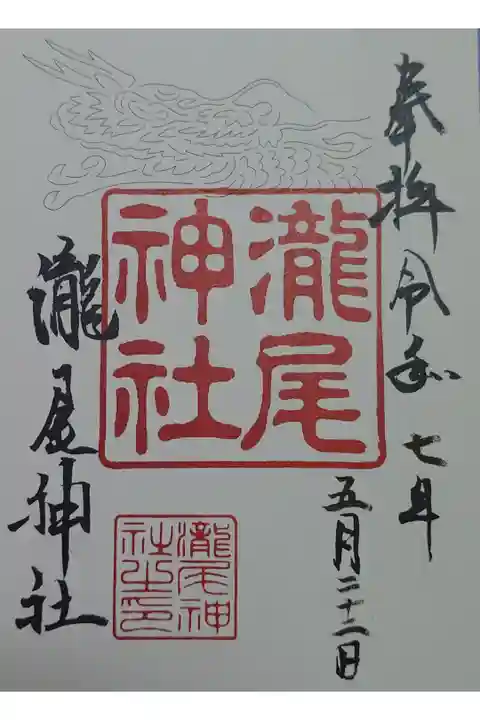 奉拝 令和七年
五月二十二日
瀧尾
神社
瀧尾神
社之印
瀧尾神社